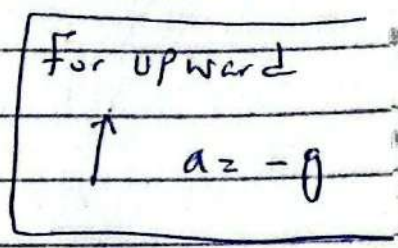 For upward
a = -g